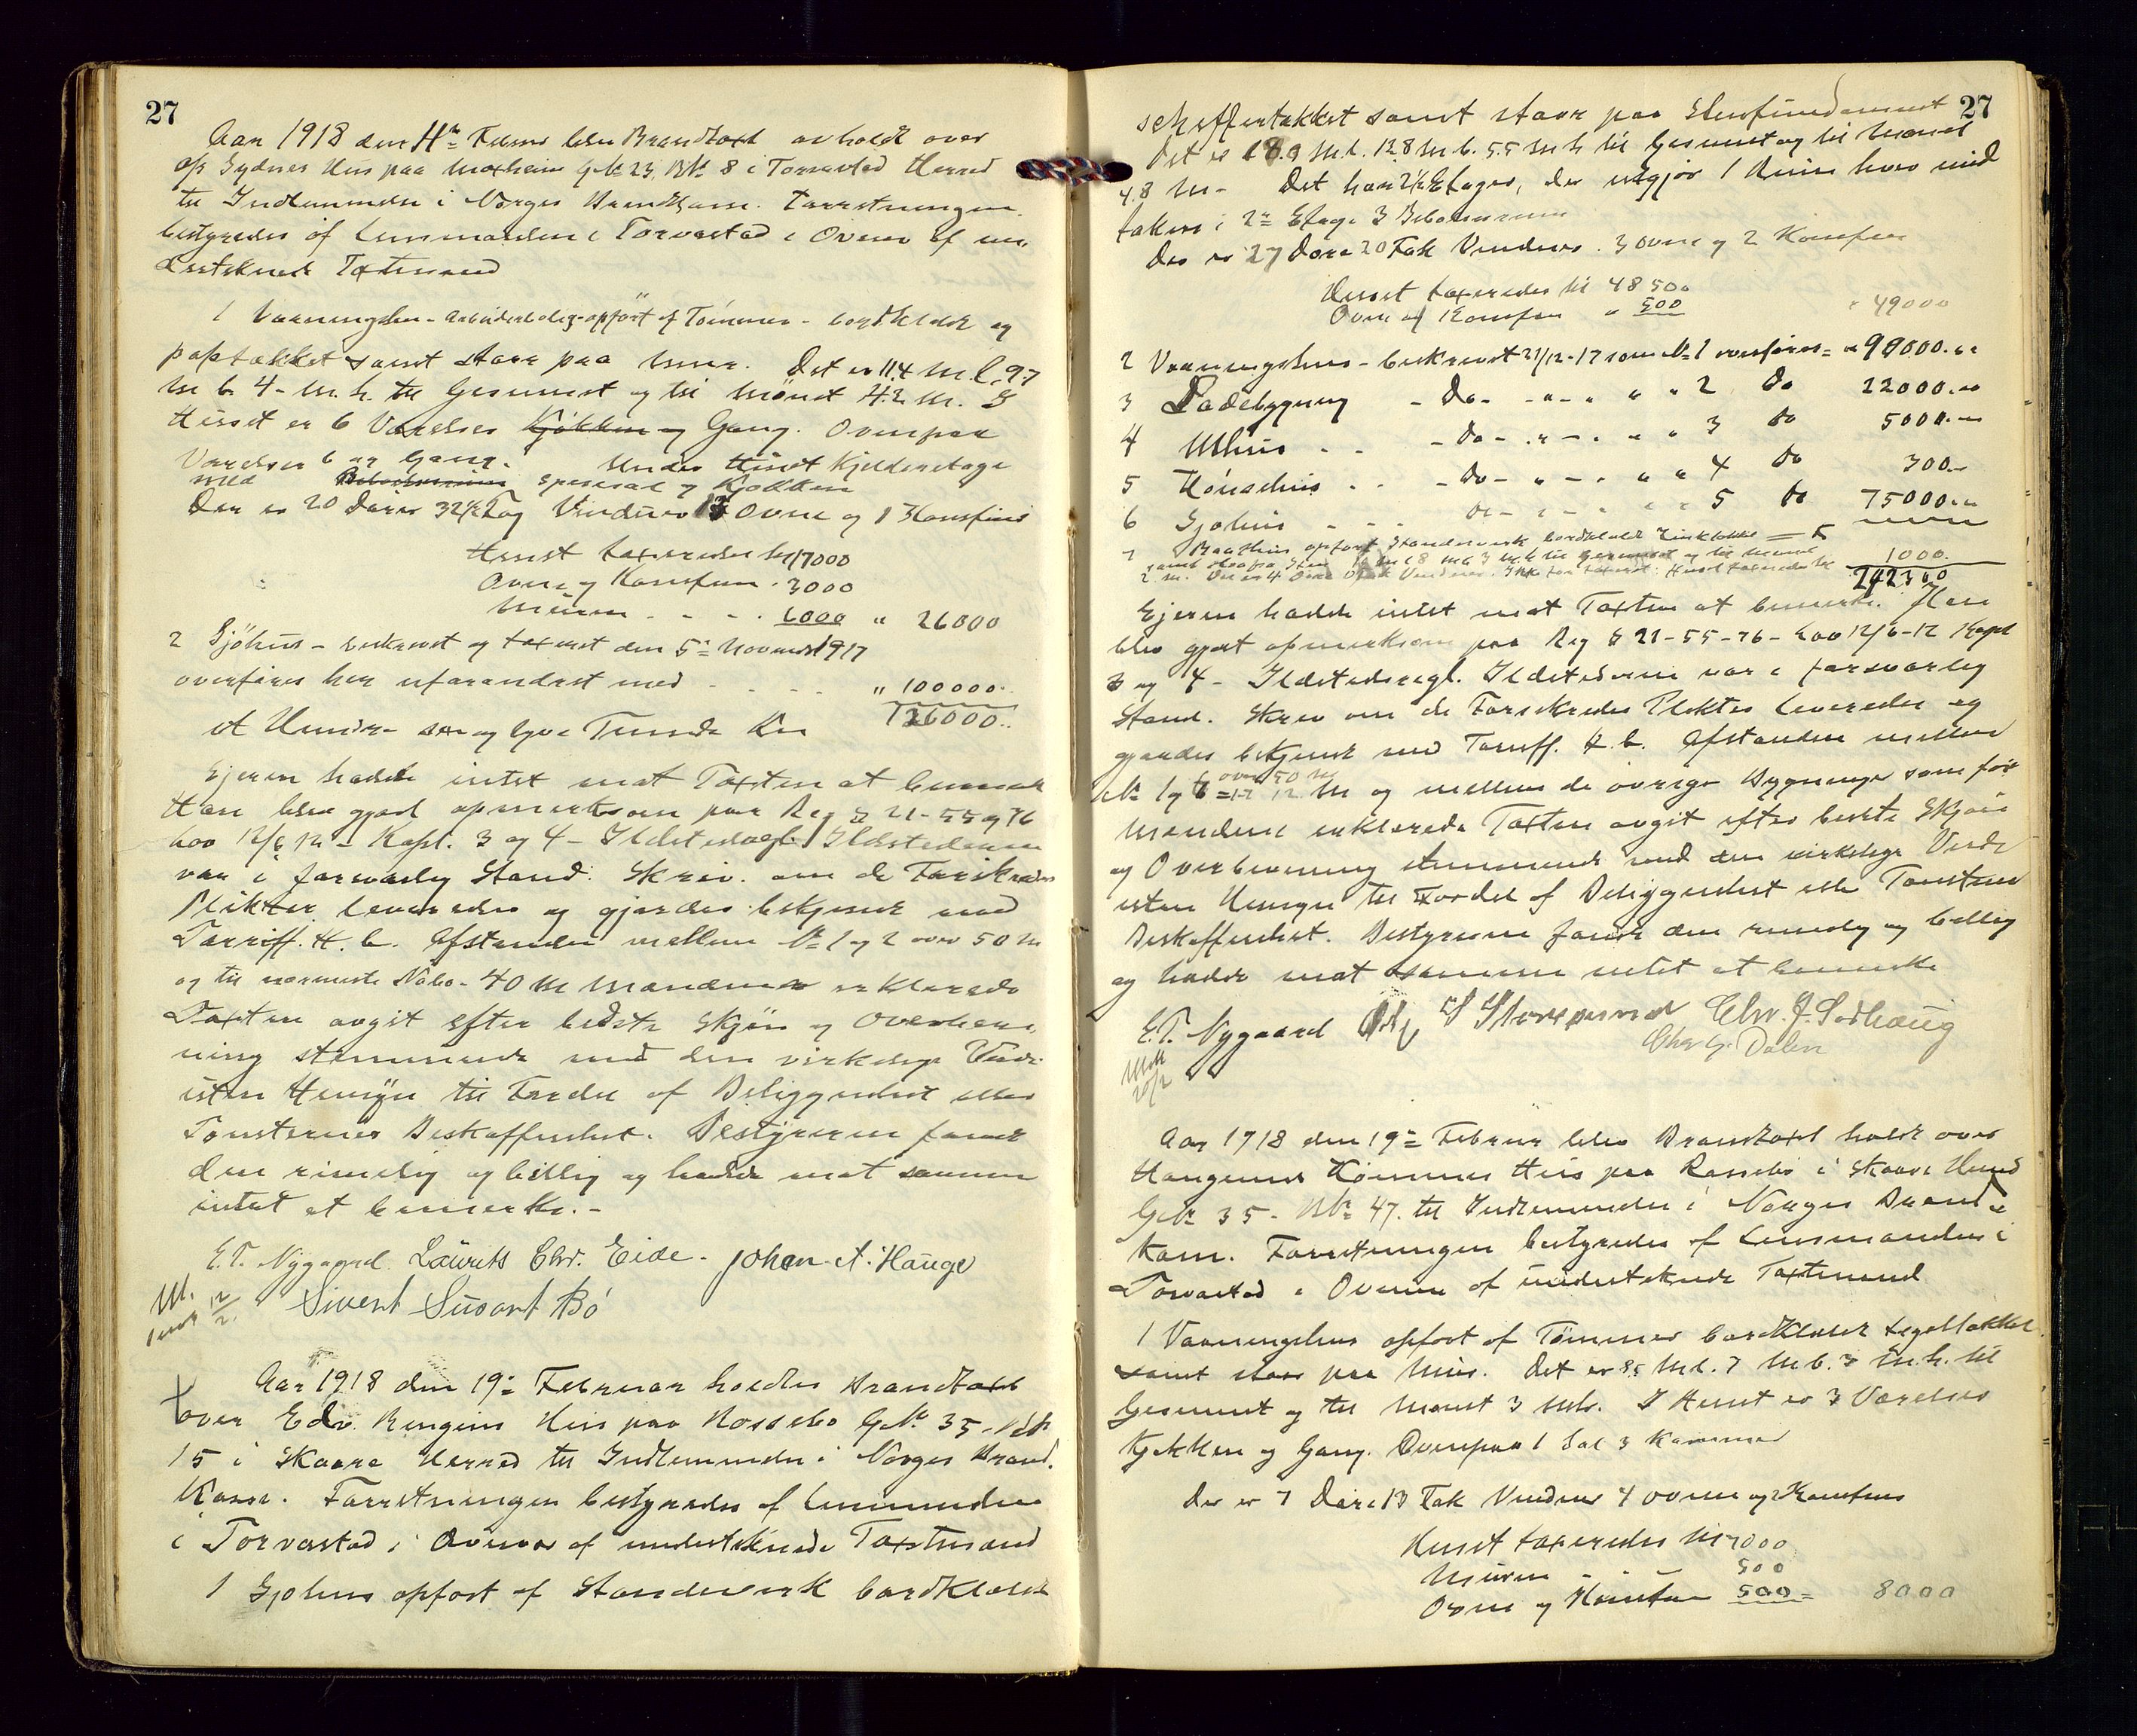 27
Aar 1918 den 4de Februar blev Brandtaxt avholdt over
Sydnes Hus paa GNr 23, BNr 8 i Torvastad Herred
til Indlemmelse i Norges Brandkasse. Forretningen
bestyredes af Lensmanden i Torvastad i Overvær af un-
derteknede Taxtmænd
1 Vaaningshus - Arbeiderbolig - opført af Tømmer - bordklædt og
paptækket samt staar paa Mur. Det er 11.4 M.l. 9.7
M b. 4 - M. h. til Gesimset og til Mønet 4.2 M. I
Huset er 6 Værelser Kjøkken og Gang. Ovenpaa
Værelser 6 og Gang. Under Huset Kjelderetage
med spisesal og Kjøkken
Der er 20 Dører 32 1/2 Fag Vinduer 13 Ovne og 1 Komfur
Huset taxeredes til 17000
Ovne og Komfur . 3000
Muren - - - . 6000 " 26000
2 Sjøhus - beskrevet og taxeret den 5te November 1917
overføres her uforandret med - . . . " 100000..
126000..
et Hundre sex og tyve Tusinde Kr
Ejeren hadde intet mot Taxten at bemerke
Han blev gjort opmerksom paa Reg § 21-55 og 76
Lov 12/6 12 - Kapt. 3 og 4 - Ildstedsregl. Ildstederne
var i forsvarlig Stand. Skriv. om de Forsikredes
Plikter leveredes og gjordes bekjendt med
Tariff. H. b. Afstanden mellem No 1 og 2 over 50 M
og til nærmeste Nabo - 40 M Mændene erklærede
Taxten avgit efter bedste Skjøn og Overbevis-
ning stemmende med den virkelige Værdi
uten Hensyn til Fordel af Beliggenhet eller
Tomternes Beskaffenhet. Bestyreren fandt
den rimelig og billig og hadde mot samme
intet at bemerke. -
E. T. Nygaard. Laurits Chr. Eide - Johan A. Hauge
Sivert Sivert Bö
Aar 1918 den 19de Februar holdtes Brandtaxt
over Edv. Ringens Hus paa Rossebø GNr 35 - BNr
15 i Skaare Herred til Indlemmelse i Norges Brand-
Kasse. Forretningen bestyredes af Lensmanden
i Torvastad i Overvær af underteknede Taxtmænd
1 Sjøhus opført af Standerverk bordklædt
27
skiffertækket samt staar paa Stenfundament
Det er 18.9 M.l. 12.8 M b. 5.5 M h til Gesimset og til Mønet
4.8 M - Det har 2 1/2 Etager, der utgjør 1 Rum hver und
taken i 2n Etage 3 Beboelsesrum
Der er 27 Døre 20 Fak Vinduer. 3 ovne og 2 Komfur
Huset taxeredes til 48500
Ovne og Komfur " 500 " 49000
2 Vaaningshus - beskrevet 21/12-17 som No 1 overføres = " 90000.00
3 Ladebygning - Do - - " - " " " 2 Do 22000.00
4 Uthus . . - Do - . " - . " " 3 Do 5000.00
5 Hønsehus . . - Do - " - . " " 4 Do 300.-
6 Sjøhus - - - Do - " - " " " 5 Do 75000.00
7 Baathus opført Standerverk bordklædt Zinktækket
1000.
242300
Ejeren hadde intet mot Taxten at bemerke. Han
blev gjort opmerksom paa Reg § 21-55-76 - Lov 12/6-12 Kapt
3 og 4 - Ildstedsregl. Ildstederne var i forsvarlig
Stand. Skrev om de Forsikredes Plikter leveredes og
gjordes bekjendt med Tariff. H. b. Afstanden mellem
over 50 M
No 1 og 6 = 12 M og mellem de øvrige Bygninger som før
Mændene erklærede Taxten avgit efter bedste Skjøn
og Overbevisning stemmende med den virkelige Værdi
uten Hensyn til Fordel af Beliggenhet eller Tomternes
Beskaffenhet. Bestyreren fandt den rimelig og billig
og hadde mot samme intet at bemerke
E. T. Nygaard Chr. J. Sørhaug
Chr G. Dalen
20/2
Aar 1918 den 19de Februar blev Brandtaxt holdt over
Hus paa Rossebø i Skaare Herred
GNr 35 - BNr 47. til Indlemmelse i Norges Brand-
kasse. Forretningen bestyredes af Lensmanden i
Torvastad i Overvær af underteknede Taxtmænd
1 Vaaningshus opført af Tømmer bordklædt tegeltækket
samt staar paa Mur. Det er 8.5 M.l. 7 M b. 3 M.h. til
Gesimset og til Mønet 3 M. I Huset er 3 Værelser
Kjøkken og Gang. Ovenpaa 1 Sal 3 Kammer
Der er 7 Døre 13 Fak Vinduer 4 ovne og 2 Komfur
Huset taxeredes til 7000
Muren - - 500
Ovne og Komfur 500 = 8000